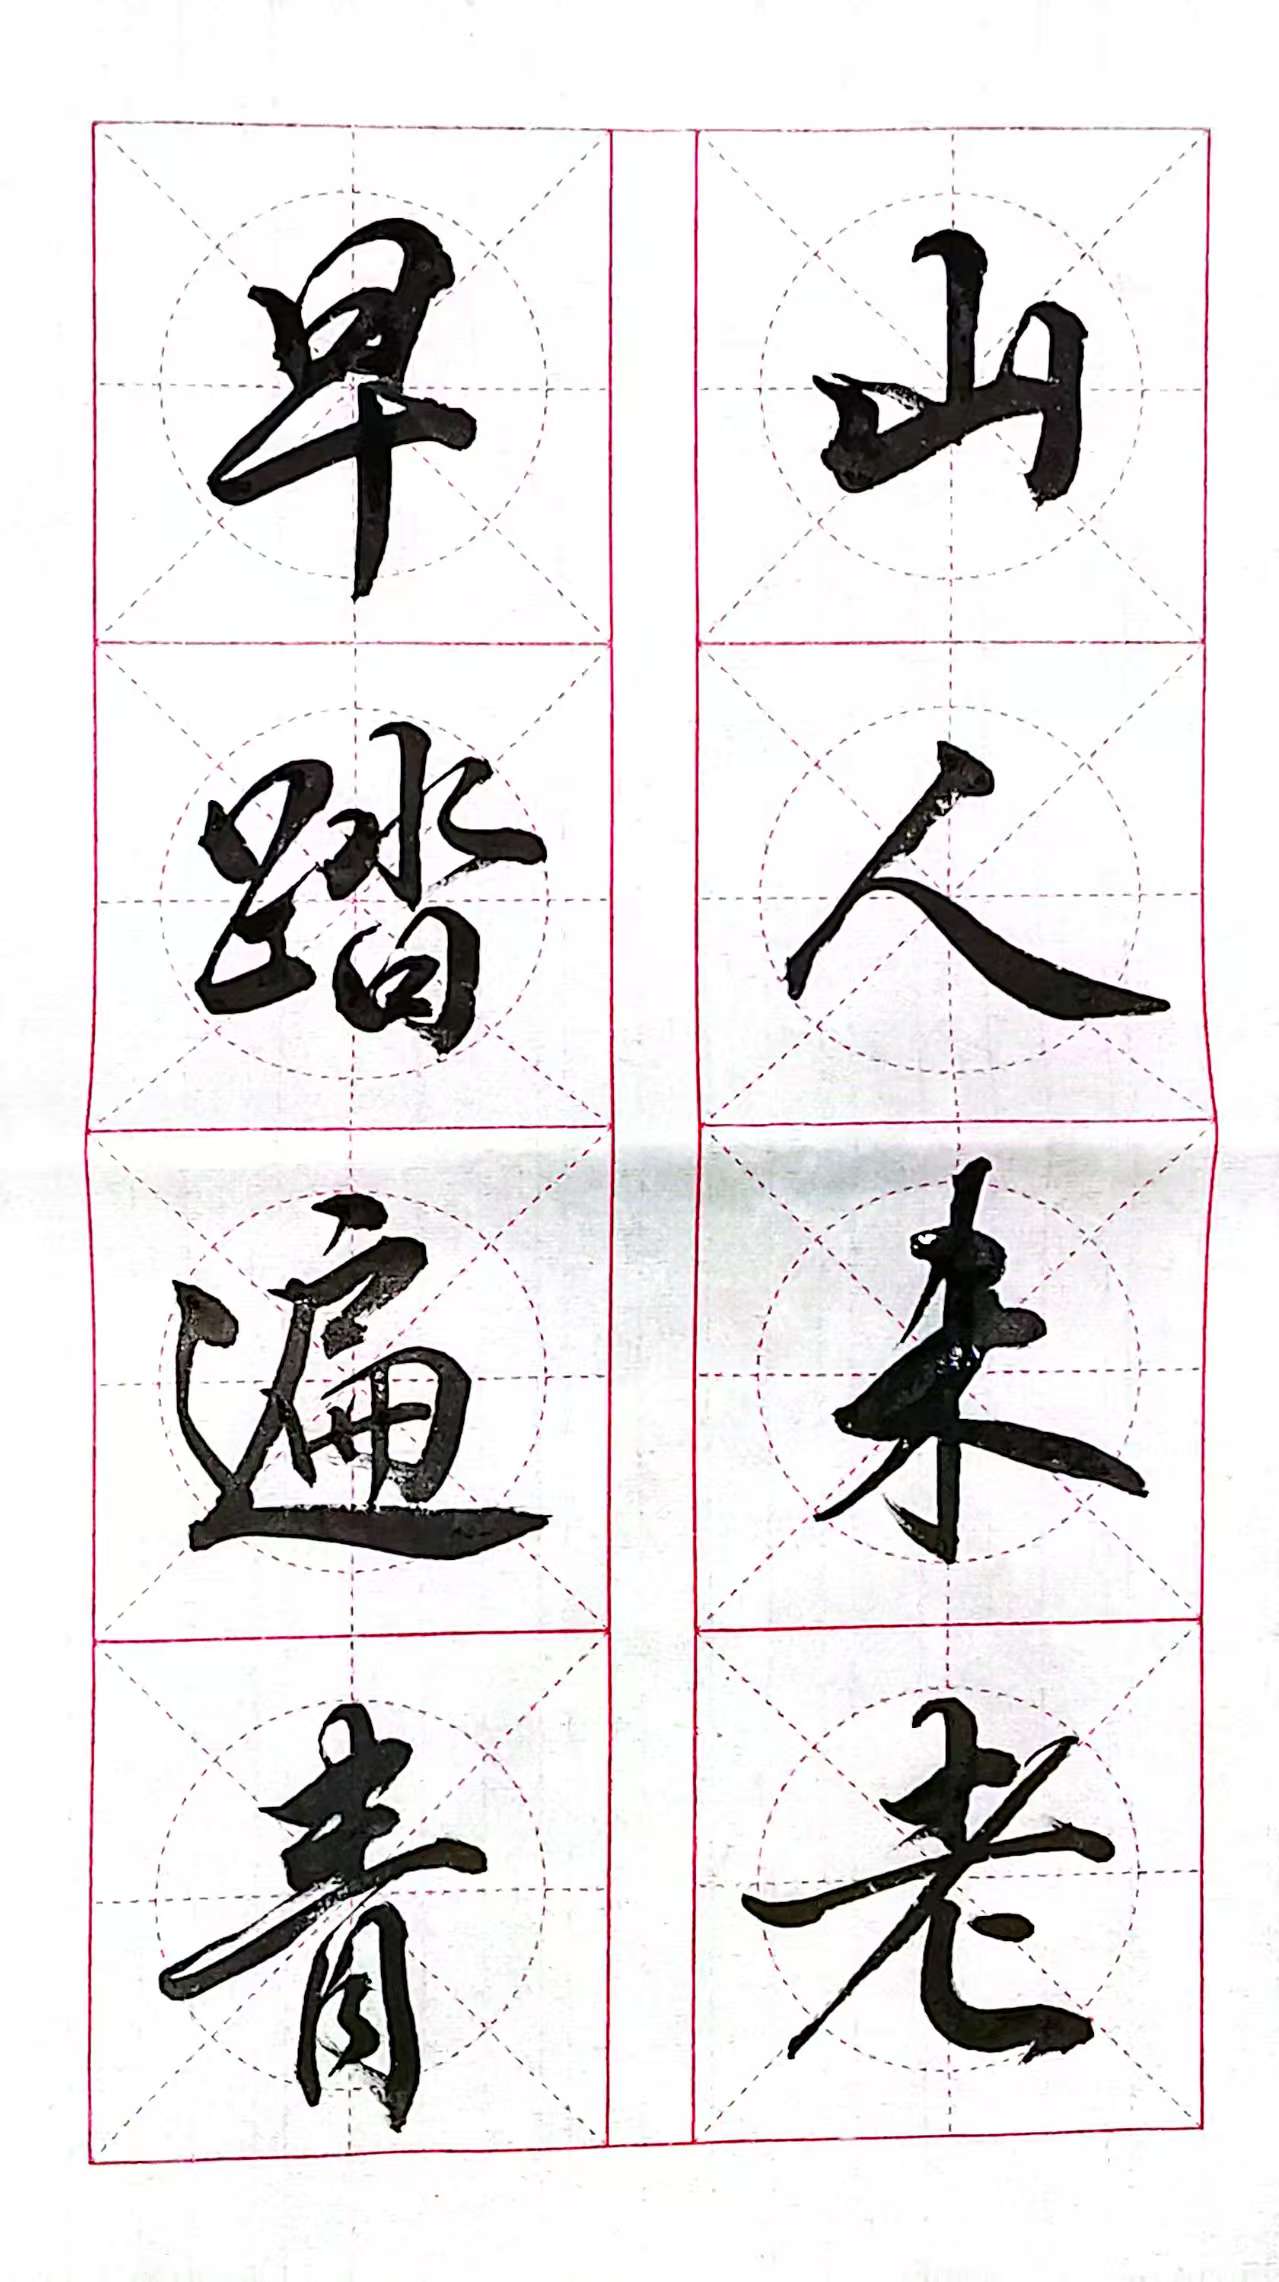 早踏遍青
山人未老